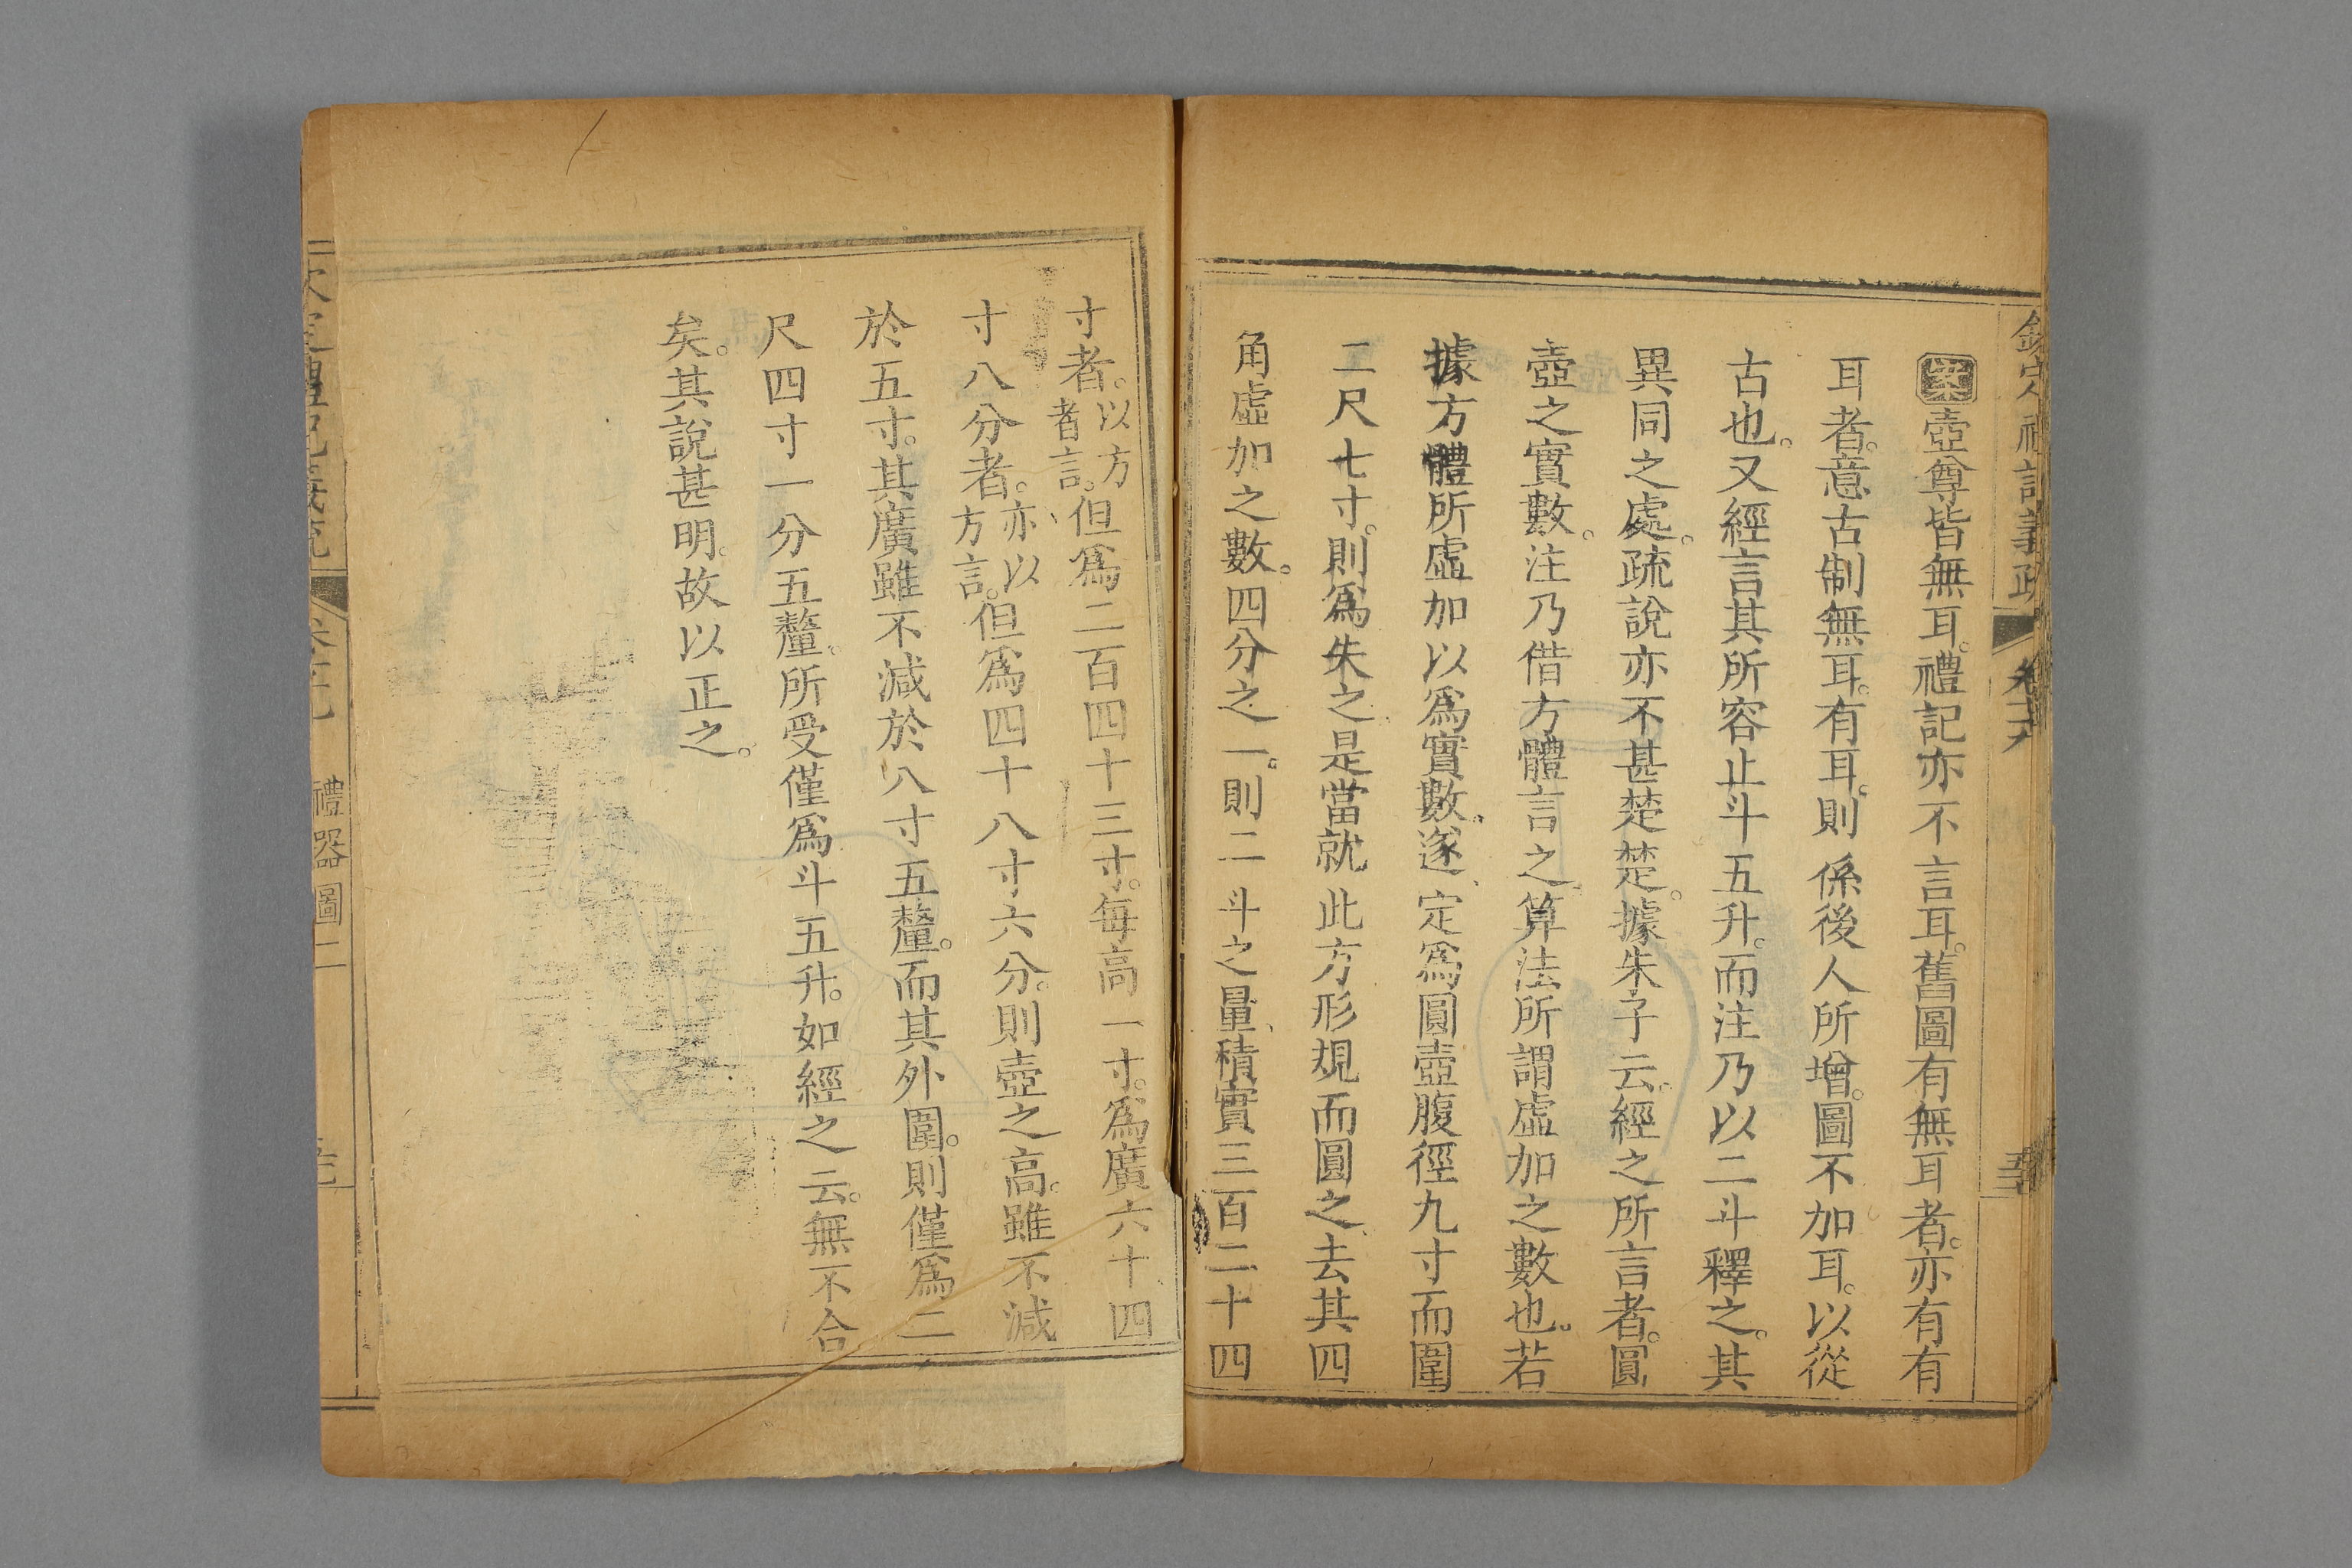 案壺尊皆無耳。禮記亦不言耳。舊圖有無耳者。亦有有
耳者。意古制無耳。有耳。則係後人所增。圖不加耳。以從
古也。又經言其所容止斗五升。而注乃以二斗釋之。其
異同之處。疏說亦不甚楚楚。據朱子云。經之所言者。圓
壺之實數。注乃借方體言之。算法所謂虛加之數也。若
據方體所虛加以為實數。遂定為圓壺腹徑九寸而圍
二尺七寸。則為失之。是當就此方形規而圓之。去其四
角虛加之數。四分之一。則二斗之量。積實三百二十四
寸者。以方者言。但為二百四十三寸。每高一寸。為廣六十四
寸八分者。亦以方言。但為四十八寸六分。則壺之高。雖不減
於五寸。其廣雖不減於八寸五釐。而其外圍。則僅為二
尺四寸一分五釐。所受僅為斗五升。如經之云。無不合
矣。其說甚明。故以正之。
禮器圖二